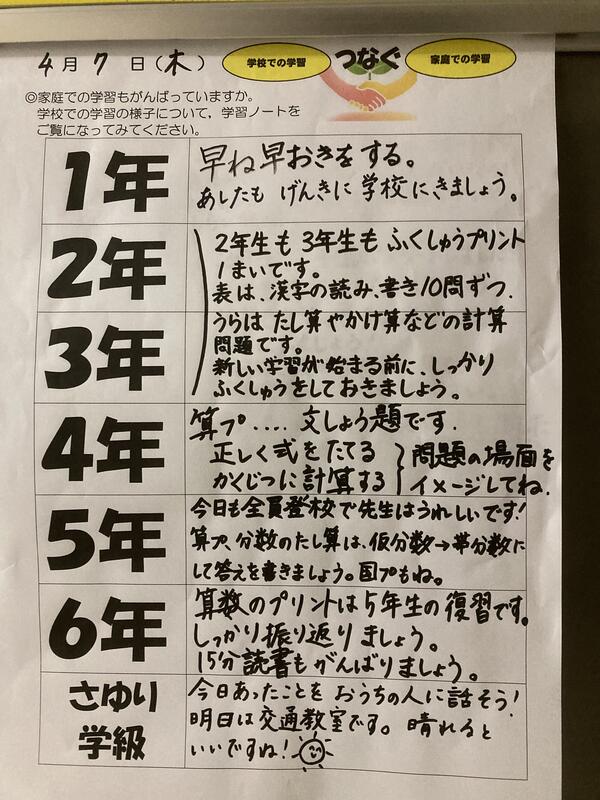 4月7日(木)
学校での学習 つなぐ 家庭での学習
◎家庭での学習もがんばっていますか。
学校での学習の様子について，学習ノートを
ご覧になってみてください。
1年
早ね早おきをする。
あしたも げんきに 学校にきましょう。
2年
3年
2年生も 3年生も ふくしゅうプリント
1まいです。
表は、漢字の読み、書き10問ずつ.
うらは たし算やかけ算などの計算
問題です。
新しい学習が始まる前に、しっかり
ふくしゅうをしておきましょう。
4年
算プ.... 文しょう題です.
正しく式をたてる
かくじつに計算する
問題の場面を
イメージしてね.
5年
今日も全員登校で先生はうれしいです!
算プ、分数のたし算は、仮分数→帯分数に
して答えを書きましょう。国プもね。
6年
算数のプリントは5年生の復習です。
しっかり振り返りましょう。
15分読書もがんばりましょう。
さゆり
学級
今日あったことを おうちの人に話そう!
明日は交通教室です。晴れると
いいですね!